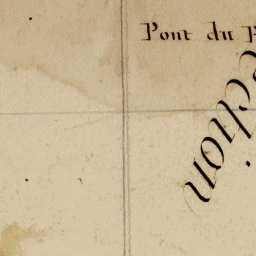 Pont du
ction